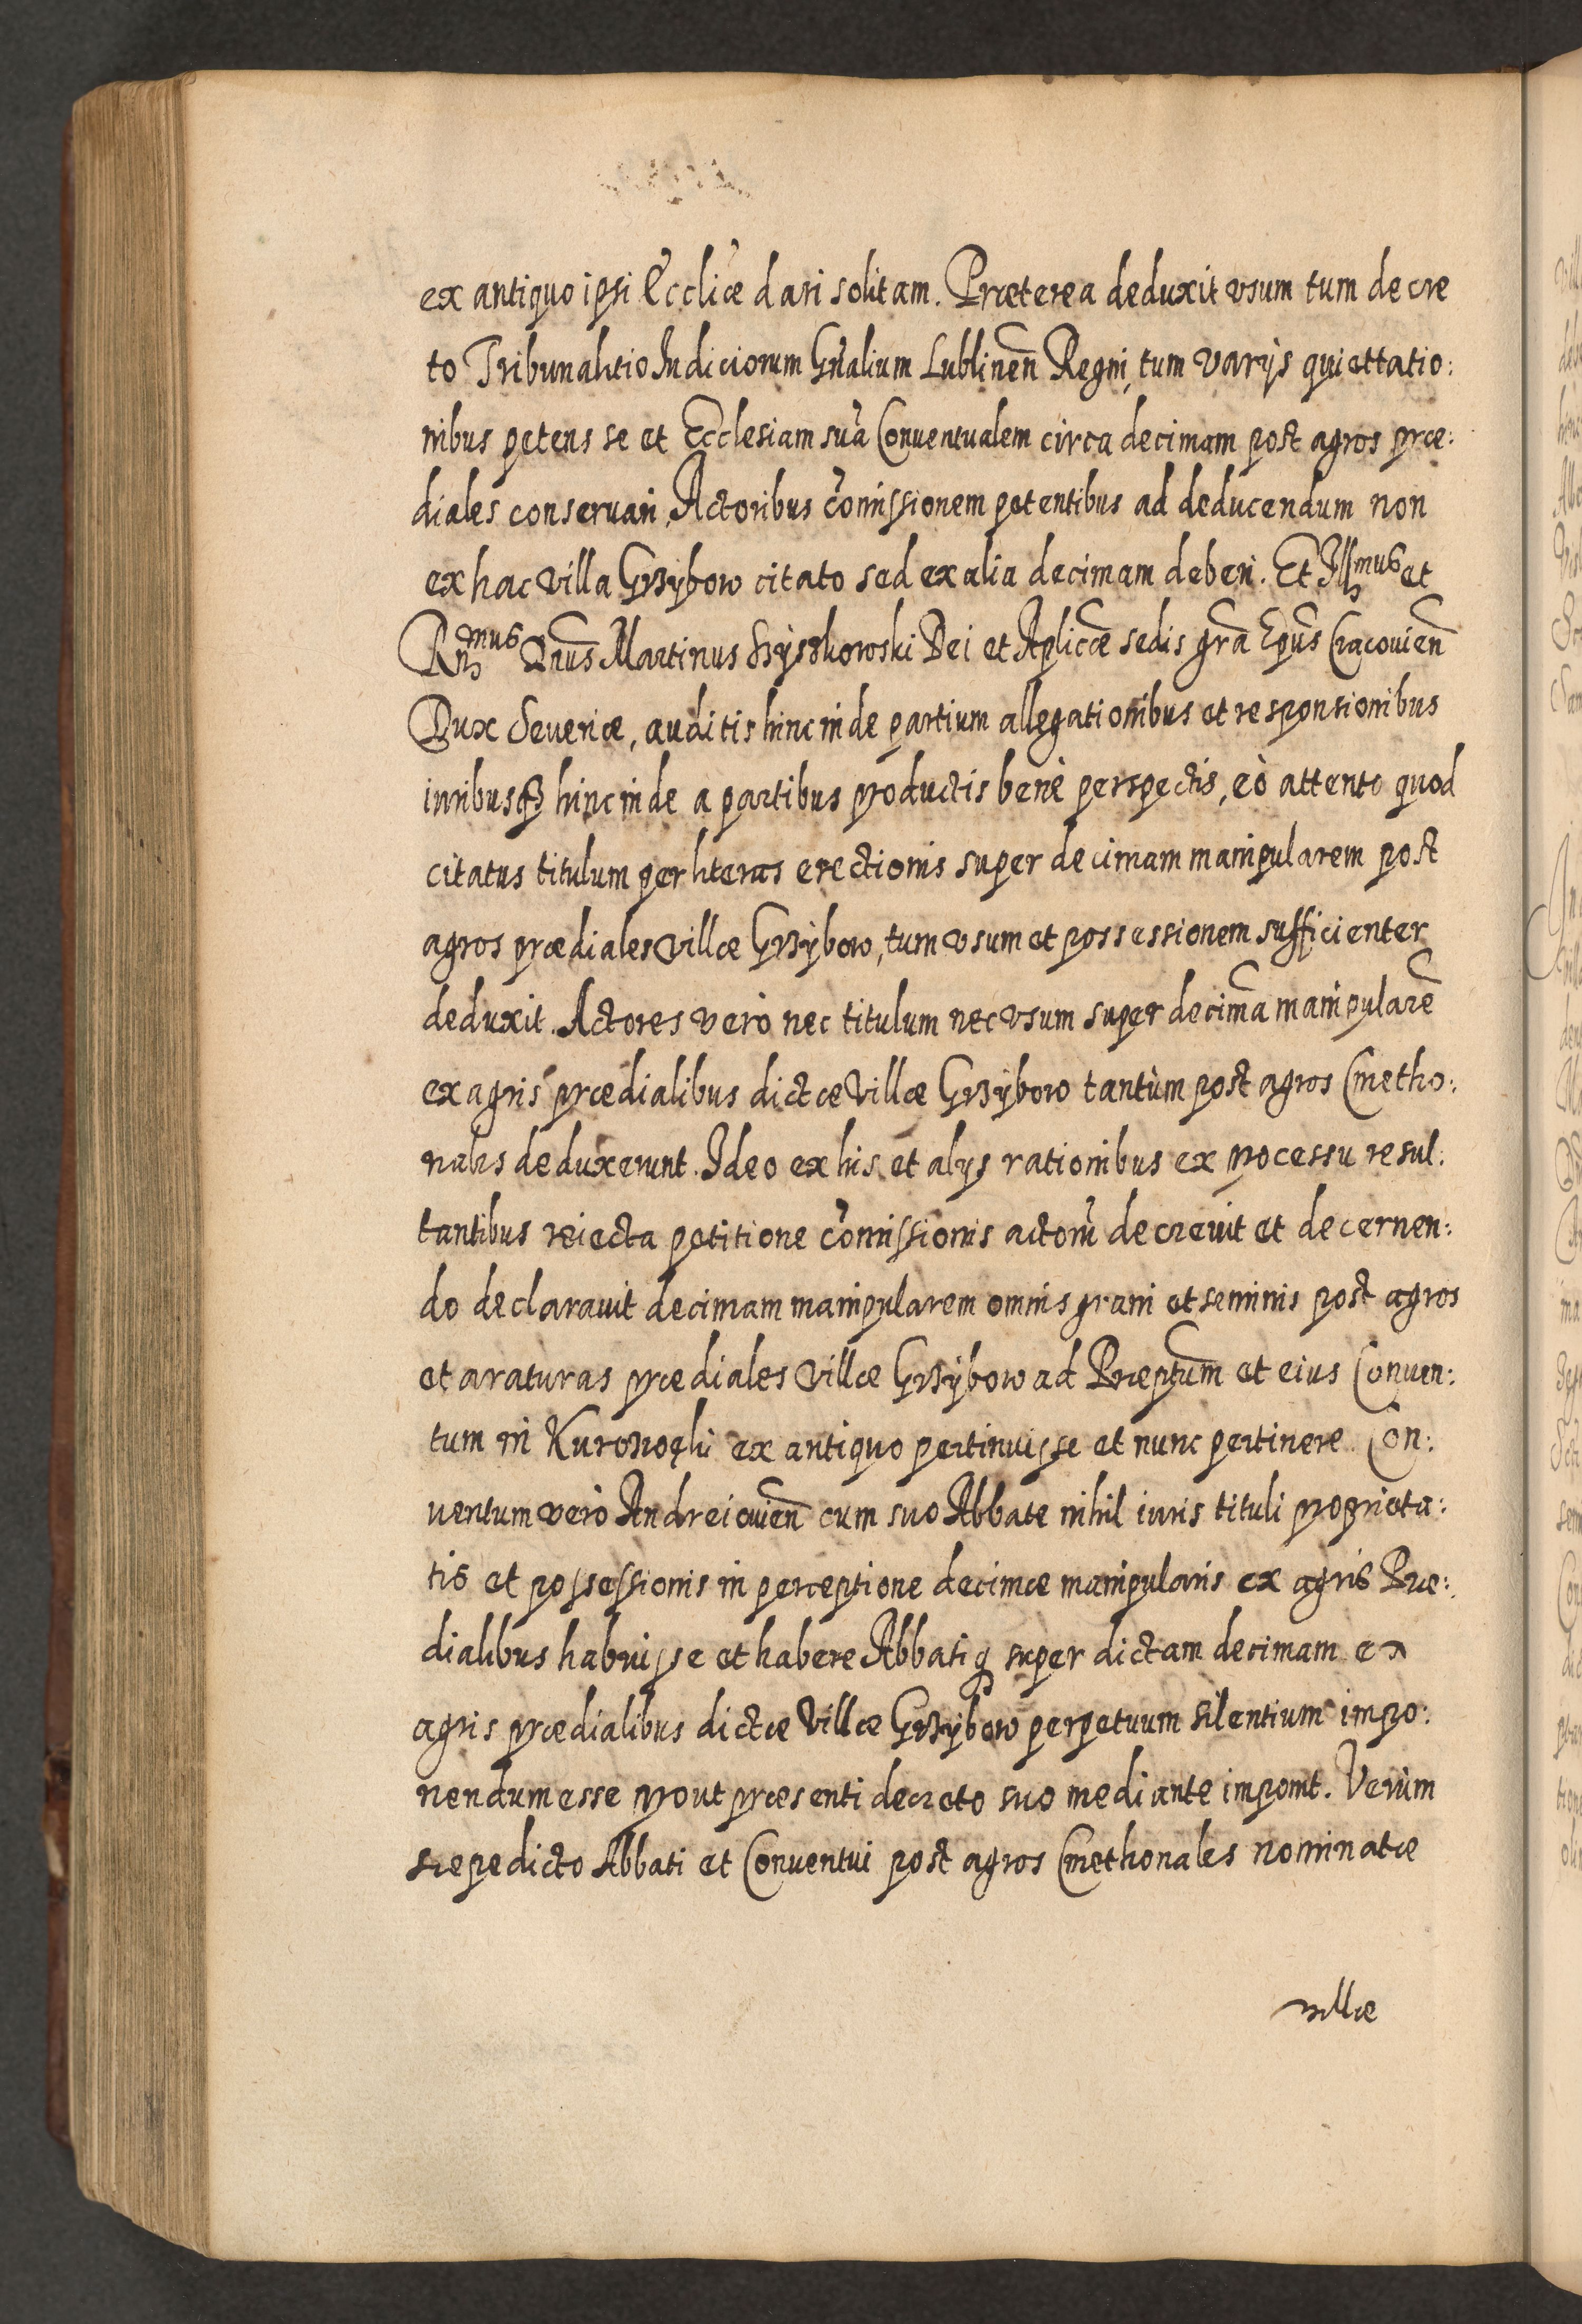 ex antiquo ipsi Ecclīæ dari solitam. Præterea deduxit vsum tum decre
to Tribunalitio Iudiciorum Gn̄alium Lublinen̄ Regni, tum varijs quiettatio:
nibus petens se et Ecclesiam suā Conuentualem circa decimam post agros præ:
diales conseruari, Actoribus com̄issionem petentibus ad deducendum non
ex hac villa Grzÿbow citato sed ex alia decimam deberi. Et Illmus et
Rndmus Dn̄us Martinus Szÿszkowski Dei et Aplicæ sedis gr̄a Epūs Cracouien̄
Dux Seueriæ, auditis hinc inde partium allegationibus et responsionibus
iuribusqꝫ hinc inde a partibus productis benè perspectis, eò attento quod
citatus titulum per literas erectionis super decimam manipularem post
agros prædiales villæ Grzÿbow, tum vsum et possessionem sufficienter
deduxit. Actores verò nec titulum nec vsum super decimā manipularē
ex agris prædialibus dictæ villæ Grzÿbow tantùm post agros Cmetho:
nales deduxerunt. Ideo ex his et alijs rationibus ex processu resul:
tantibus reiecta petitione com̄issionis actorū decreuit et decernen:
do declarauit decimam manipularem omnis grani et seminis post agros
et araturas prædiales villæ Grzÿbow ad Præptum̄ et eius Conuen:
tum in Kurozwęki ex antiquo pertinuisse et nunc pertinere. Con:
uentum verò Andreiouien̄ cum suo Abbate nihil iuris tituli proprieta:
tis et possessionis in perceptione decimæ manipularis ex agris Præ:
dialibus habuisse et habere Abbatiqꝫ super dictam decimam ex
agris prædialibus dictæ villæ Grzÿbow perpetuum silentium impo:
nendum esse prout præsenti decreto suo mediante imponit. Verùm
sæpedicto Abbati et Conuentui post agros Cmethonales nominatæ
villæ